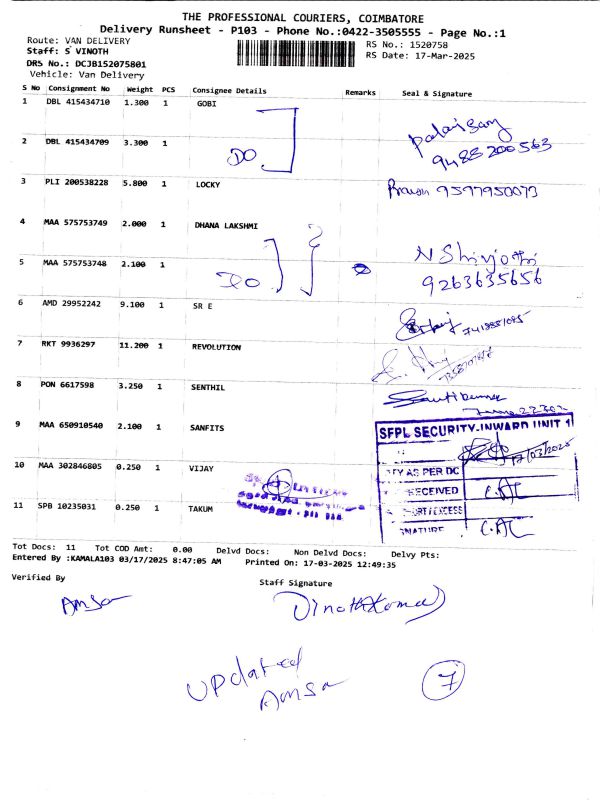 THE PROFESSIONAL COURIERS, COIMBATORE
Delivery Runsheet - P103 - Phone No.:0422-3505555 - Page No.:1
Route: VAN DELIVERY
RS No.: 1520758
Staff: S VINOTH
RS Date: 17-Mar-2025
DRS No.: DCJB152075801
Vehicle: Van Delivery
S No Consignment No Weight PCS Consignee Details Remarks Seal & Signature
1 DBL 415434710 1.300 1 GOBI
2 DBL 415434709 3.300 1
DO
9488200563
3 PLI 200538228 5.800 1 LOCKY
9597950073
4 MAA 575753749 2.000 1 DHANA LAKSHMI
5 MAA 575753748 2.100 1
DO
9263635656
6 AMD 29952242 9.100 1 SR E
7 RKT 9936297 11.200 1 REVOLUTION
8 PON 6617598 3.250 1 SENTHIL
9 MAA 650910540 2.100 1 SANFITS
SFPL SECURITY-INWARD UNIT 1
17/03/2025
TY AS PER DC
RECEIVED
10 MAA 302846805 0.250 1 VIJAY
11 SPB 10235031 0.250 1 TAKUM
Tot Docs: 11 Tot COD Amt: 0.00 Delvd Docs: Non Delvd Docs: Delvy Pts:
Entered By :KAMALA103 03/17/2025 8:47:05 AM Printed On: 17-03-2025 12:49:35
Verified By
Staff Signature
Amsa
Vinothkumar
Updated
Amsa
7